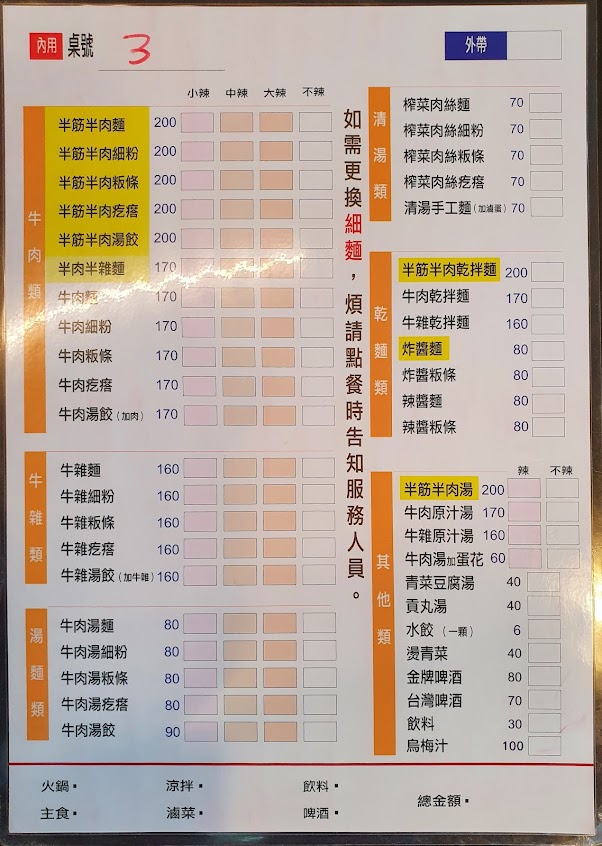 內用 桌號 3
外帶
小辣 中辣 大辣 不辣
牛肉類
半筋半肉麵 200
半筋半肉細粉 200
半筋半肉粄條 200
半筋半肉疙瘩 200
半筋半肉湯餃 200
半肉半雜麵 170
牛肉麵 170
牛肉細粉 170
牛肉粄條 170
牛肉疙瘩 170
牛肉湯餃(加肉) 170
牛雜類
牛雜麵 160
牛雜細粉 160
牛雜粄條 160
牛雜疙瘩 160
牛雜湯餃(加牛雜) 160
湯麵類
牛肉湯麵 80
牛肉湯細粉 80
牛肉湯粄條 80
牛肉湯疙瘩 80
牛肉湯餃 90
如需更換細麵，煩請點餐時告知服務人員。
清湯類
榨菜肉絲麵 70
榨菜肉絲細粉 70
榨菜肉絲粄條 70
榨菜肉絲疙瘩 70
清湯手工麵(加滷蛋) 70
乾麵類
半筋半肉乾拌麵 200
牛肉乾拌麵 170
牛雜乾拌麵 160
炸醬麵 80
炸醬粄條 80
辣醬麵 80
辣醬粄條 80
辣 不辣
其他類
半筋半肉湯 200
牛肉原汁湯 170
牛雜原汁湯 160
牛肉湯加蛋花 60
青菜豆腐湯 40
貢丸湯 40
水餃(一顆) 6
燙青菜 40
金牌啤酒 80
台灣啤酒 70
飲料 30
烏梅汁 100
火鍋▪ 涼拌▪ 飲料▪
主食▪ 滷菜▪ 啤酒▪
總金額▪